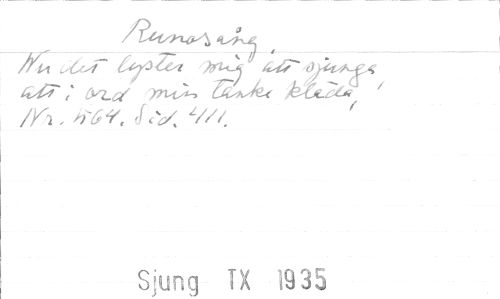 Runosång.
Nu det lyster mig att sjunga,
att i ord min tanke kläda,
Nr. 564. Sid. 411.
Sjung TX 1935